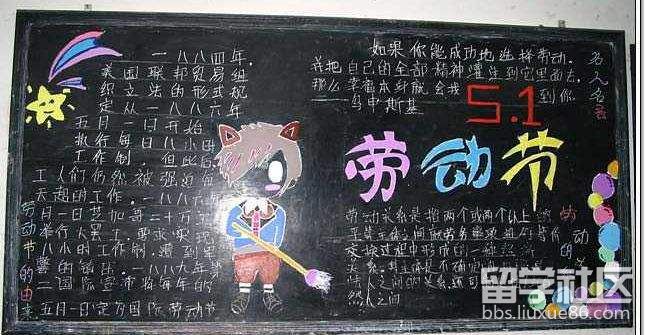 一八八四年,
美国联邦贸易组
织立法的形式规
定从一八八六年
五月一日开始
执行每日八小时
工作制,但此后
工人们仍然被强迫做
天超的工作。一八八六年
月一日芝加哥二十万工
举行大罢工,要求实现
八小时的工作制,遭到军
警的镇压。一八八九年第
二国际宣布将每年的
五月一日定为国际劳动节
劳动节的由来
如果你能成功地选择劳动,
并把自己的全部精神灌注到它里面去,
那么幸福本身就会找到你
——乌申斯基
名人名言
5.1
劳动节
劳动关系是指两个或两个以上
交换过程中形成的一种经济
关系,其主体是不确定的
然人之间
留学社区
bbs.liuxue86.com